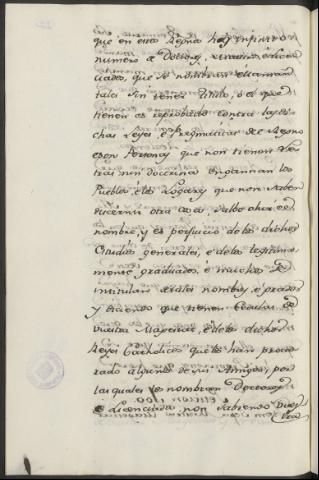 que en estos Reynos hay infinito
numero de Doctores, e Licen
ciados, que se nombran e llaman
tales sin tener titulo, o el que
tienen es reprobado contra las di
chas Leyes, e Pragmaticas del Reyno
e son Personas que non tienen Le
tras nin doctrina engannan los
Pueblos e los Logares que non saben
discernir otra cosa salvo oir el
nombre, y es perjuicio de los dichos
Estudios generales, e de los legitima
mente graduados, e muchos se
intitulan e tales nombres e grados
y diciendo que tienen Cedulas de
vuestra Magestad, e de los dichos
Reyes Catholicos que les han procu
rado algunos de sus Amigos, por
las quales se nombren Doctores,
e Licenciados non sabiendo Vues
tra